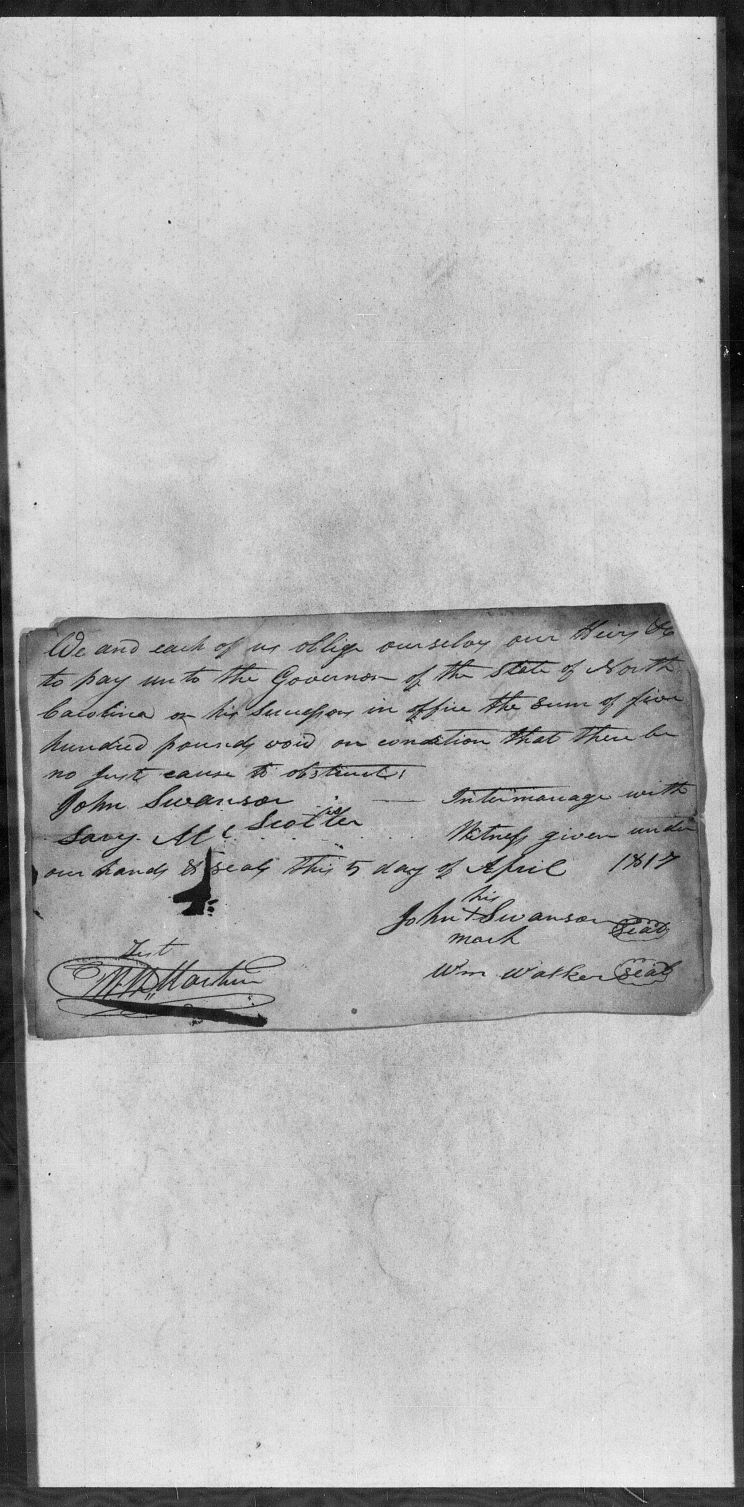 We and each of us oblige ourselves our Heirs &c
to pay unto the Governor of the State of North
Carolina or his Successors in office the sum of five
hundred pounds void on condition that there be
no Just cause to obstruct
John Swanson — Intermarriage with
Mc Witness given under
our hands & seals this 5 day of April 1817
his
John + Swanson seal
mark
Test
Martin
Wm Walker seal